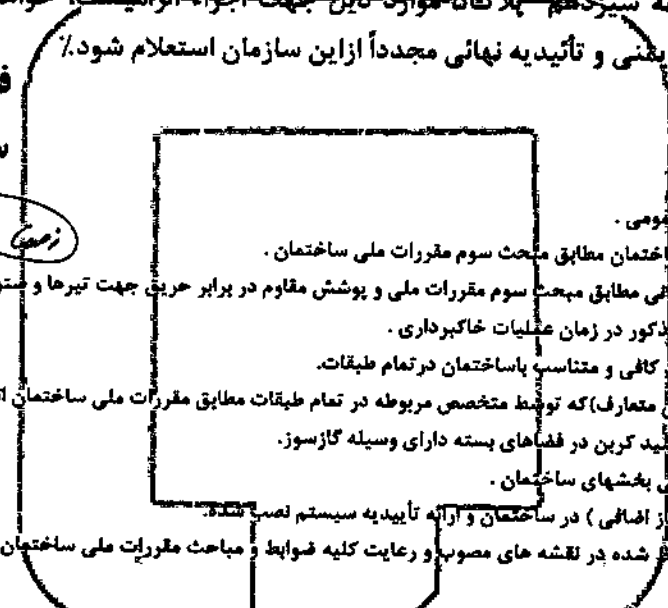 سیزدهم
یقنی و تأئیدیه نهائی مجدداً ازاین سازمان استعلام شود.٪
ومی .
اختمان مطابق مبحث سوم مقررات ملی ساختمان .
فی مطابق مبحث سوم مقررات ملی و پوشش مقاوم در برابر حریق جهت تیرها و ستو
ذکور در زمان عملیات خاکبرداری .
کافی و متناسب باساختمان درتمام طبقات.
متعارف)که توسط متخصص مربوطه در تمام طبقات مطابق مقررات ملی ساختمان
ید کربن در فضاهای بسته دارای وسیله گازسوز.
بخشهای ساختمان .
از اضافی ) در ساختمان و ارائه تأییدیه سیستم نصب شده.
شده در نقشه های مصوب و رعایت کلیه ضوابط و مباحث مقررات ملی ساختمان